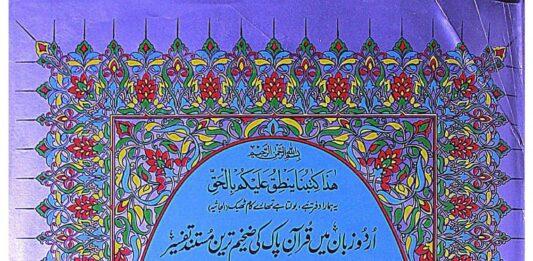 بسم الله الرحمن الرحيم
هٰذَا كِتٰبُنَا يَنْطِقُ عَلَيْكُمْ بِالْحَقِّ
یہ ہمارا دفتر ہے، بولتا ہے تمہارے کام ٹھیک (الجاثیہ)
اُردو زبان میں قرآنِ پاک کی ضخیم ترین مُستند تفسیر